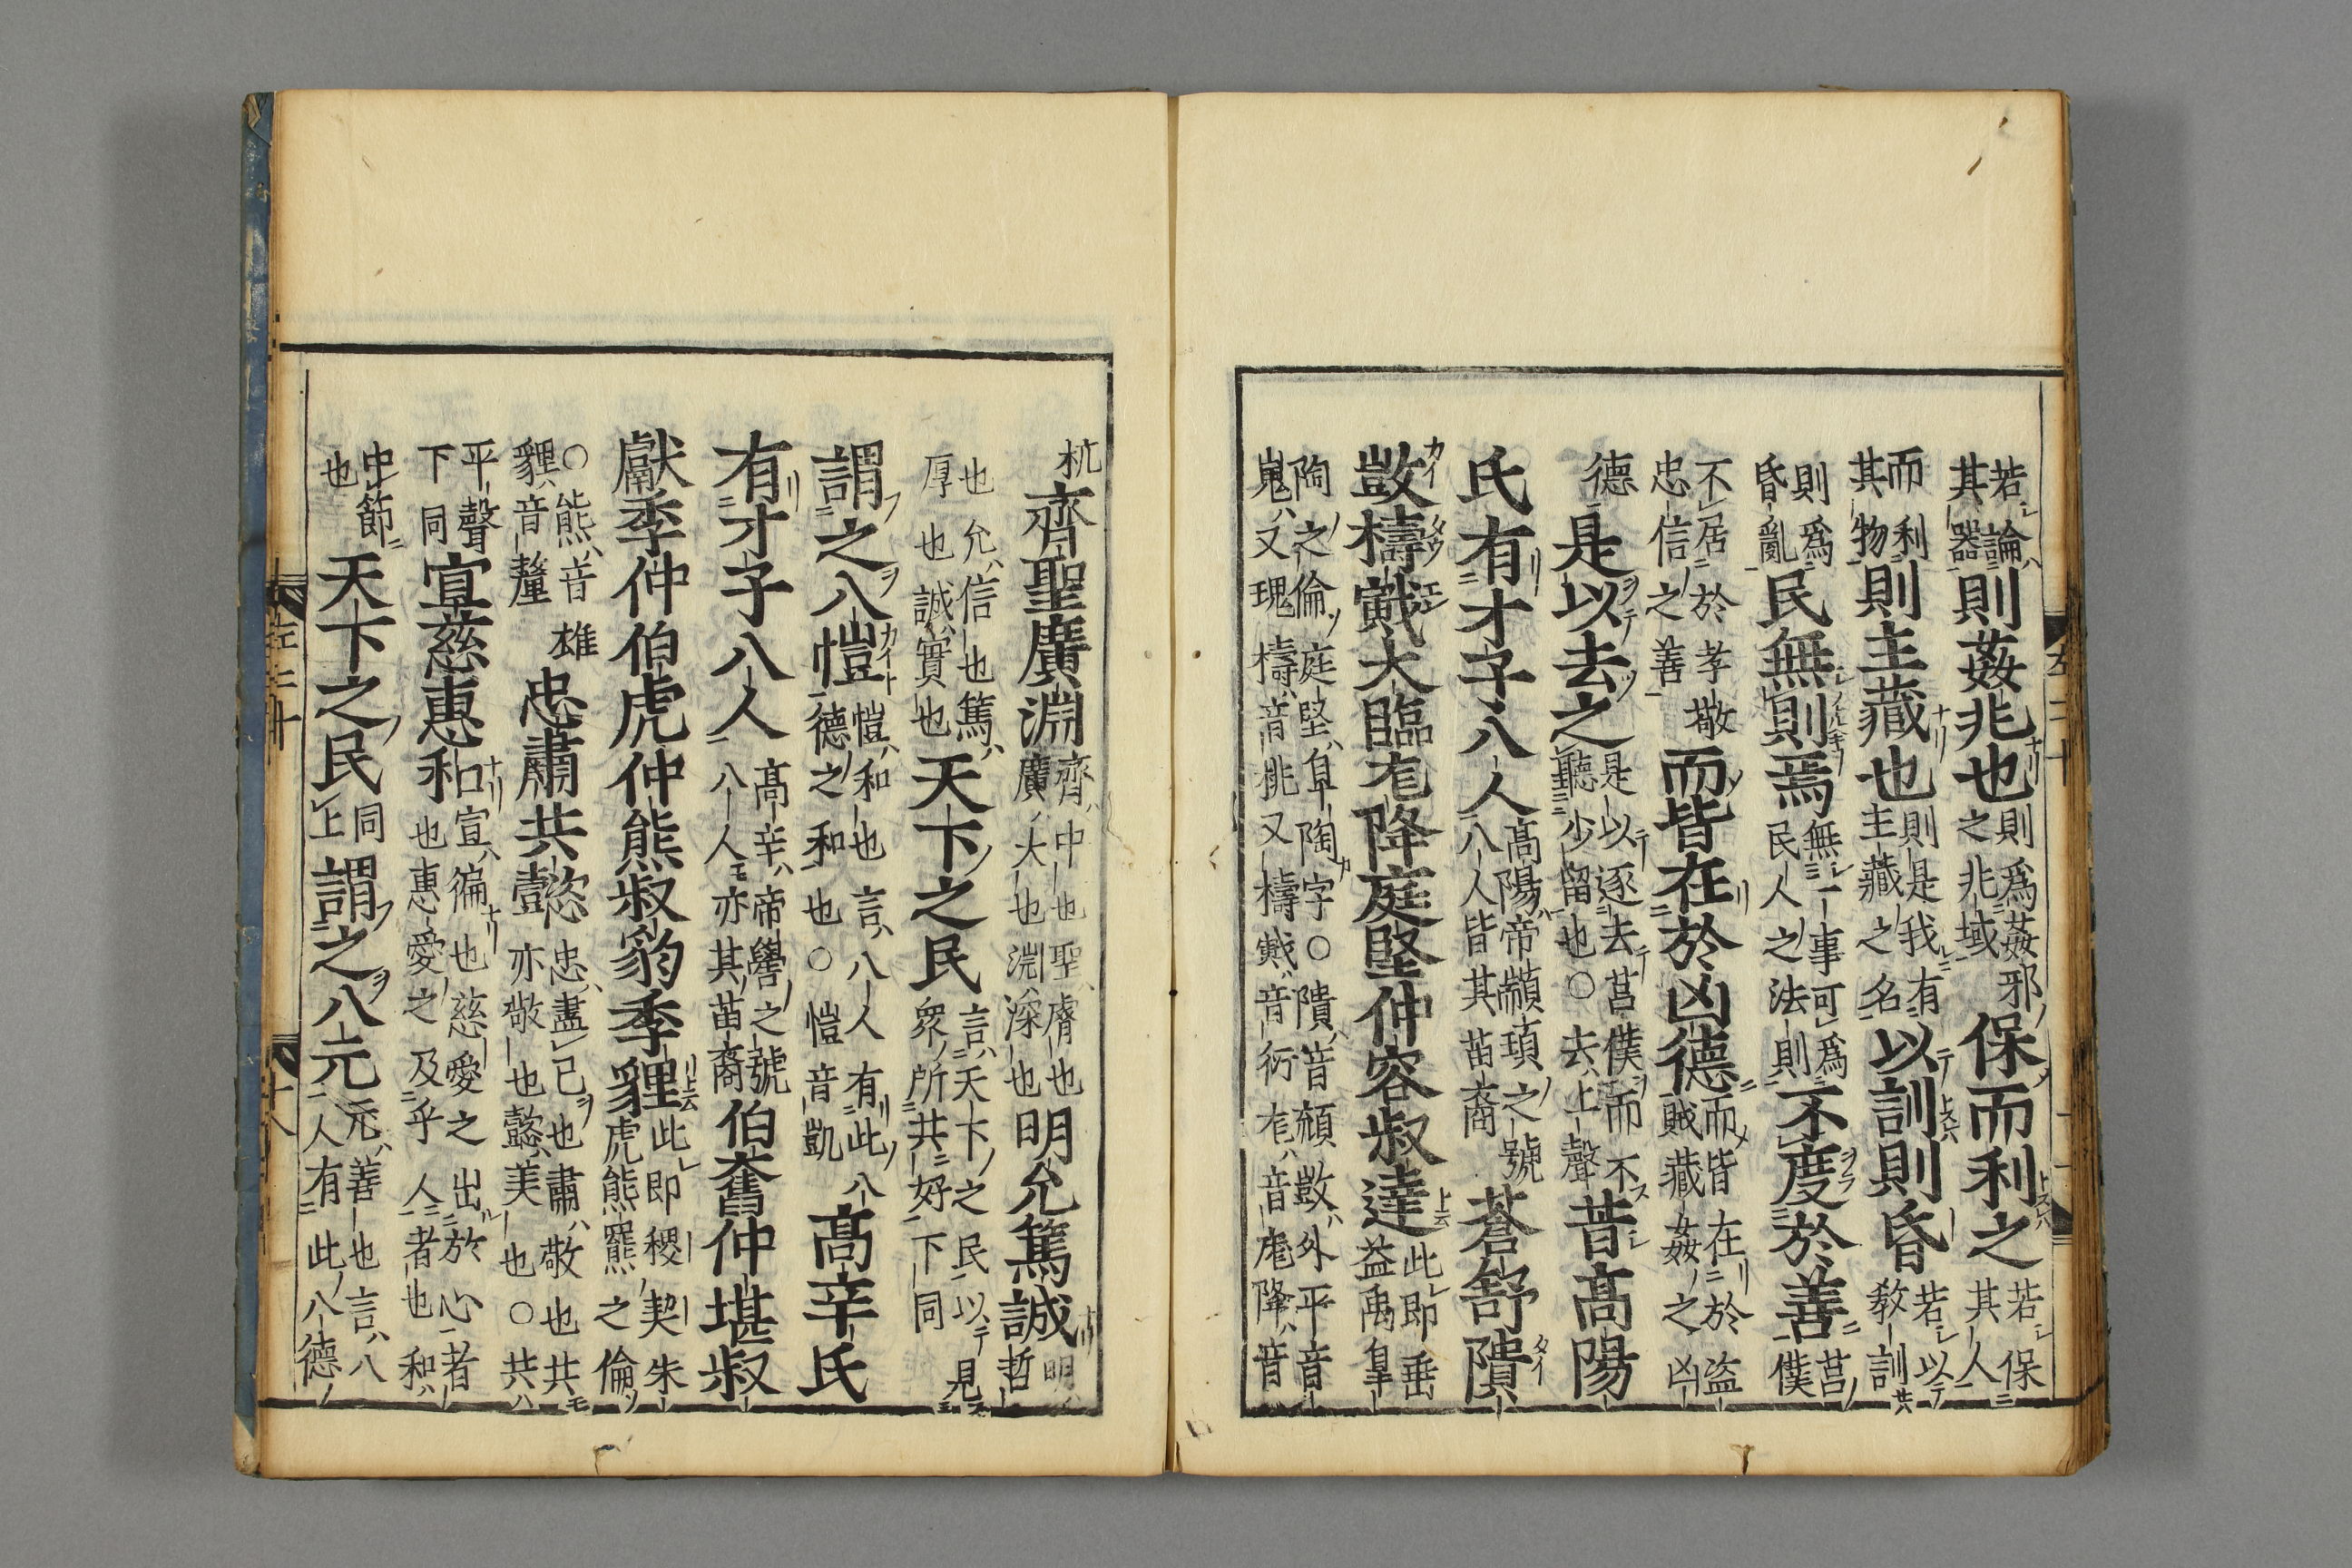 若論其器則姦兆也則爲姦邪之兆域保而利之若保其人
而利其物則主藏也則是我有主藏之名以訓則昏若以教訓
則爲昏亂民無則焉無一事可爲民人之法則不度於善莒僕
不居於孝敬忠信之善而皆在於凶德而皆在於盗賊藏姦之凶
德是以去之是以逐去莒僕而不聽少留也○去上聲昔高陽
氏有才子八人高陽帝顓頊之號八人皆其苗裔蒼舒隤
敳檮戭大臨尨降庭堅仲容叔達此即垂益禹皐
陶之倫庭堅皐陶字○隤音頽敳外平音嵬又瑰檮音桃又檮戭音衍尨音厖降音
杭齊聖廣淵齊中也聖膚也廣大也淵深也明允篤誠明哲
也允信也篤厚也誠實也天下之民言天下之民以見衆所共好下同
謂之八愷愷和也言八人有此八德之和也○愷音凱高辛氏
有才子八人高辛帝嚳之號八人亦其苗裔伯奮仲堪叔
獻季仲伯虎仲熊叔豹季貍此即稷契朱虎熊羆之倫
○熊音雄貍音釐忠肅共懿忠盡己也肅敬也共亦敬也懿美也○共
平聲下同宣慈惠和宣徧也慈愛之出於心者也惠愛之及乎人者也和
中節也天下之民同上謂之八元元善也言八人有此八德
左二十 十八